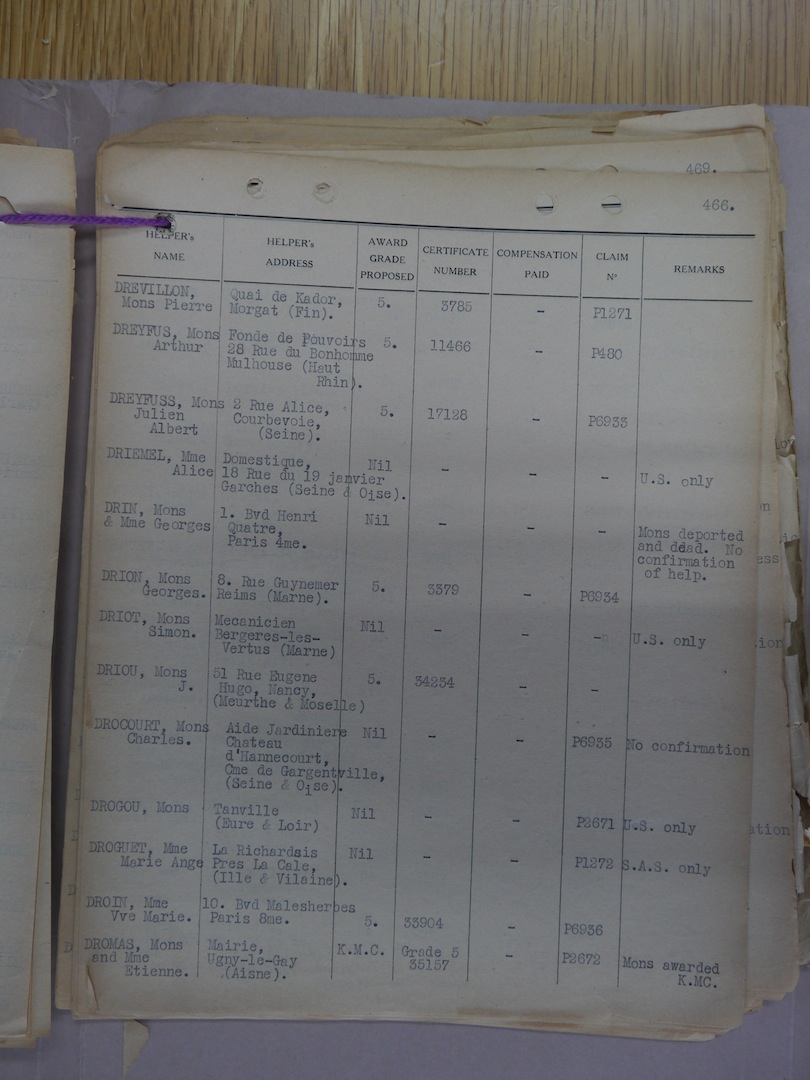 469.
466.
HELPER's NAME
HELPER's ADDRESS
AWARD GRADE PROPOSED
CERTIFICATE NUMBER
COMPENSATION PAID
CLAIM Nº
REMARKS
DREVILLON, Quai de Kador, 5. 3785 - P1271
Mons Pierre Morgat (Fin).
DREYFUS, Mons Fonde de Pouvoirs 5. 11466 - P480
Arthur 28 Rue du Bonhomme
Mulhouse (Haut
Rhin).
DREYFUSS, Mons 2 Rue Alice, 5. 17128 - P6933
Julien Courbevoie,
Albert (Seine).
DRIEMEL, Mme Domestique, Nil - - - U.S. only
Alice 18 Rue du 19 janvier
Garches (Seine & Oise).
DRIN, Mons 1. Bvd Henri Nil - - - Mons deported
& Mme Georges Quatre, and dead. No
Paris 4me. confirmation
of help.
DRION, Mons 8. Rue Guynemer 5. 3379 - P6934
Georges. Reims (Marne).
DRIOT, Mons Mecanicien Nil - - - U.S. only
Simon. Bergeres-les-
Vertus (Marne)
DRIOU, Mons 51 Rue Eugene 5. 34234 - -
J. Hugo, Nancy,
(Meurthe & Moselle)
DROCOURT, Mons Aide Jardiniere Nil - - P6935 No confirmation
Charles. Chateau
d'Hannecourt,
Cme de Gargentville,
(Seine & Oise).
DROGOU, Mons Tanville Nil - - P2671 U.S. only
(Eure & Loir)
DROGUET, Mme La Richardais Nil - - P1272 S.A.S. only
Marie Ange Pres La Cale,
(Ille & Vilaine).
DROIN, Mme 10. Bvd Malesherbes
Vve Marie. Paris 8me. 5. 33904 - P6936
DROMAS, Mons Mairie, K.M.C. Grade 5 - P2672 Mons awarded
and Mme Ugny-le-Gay 35157 K.MC.
Etienne. (Aisne).